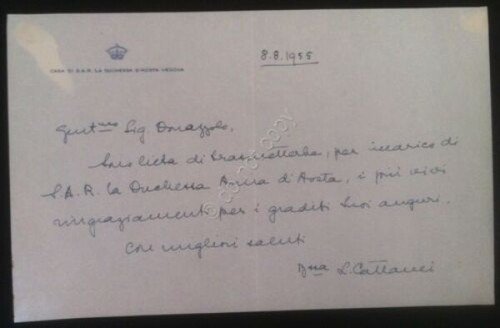 CASA DI S.A.R. LA DUCHESSA D'AOSTA VEDOVA
8.8.1955
Gent.mo Sig. Donazzolo,
Sono lieta di trasmetterLe, per incarico di
S.A.R. la Duchessa Anna d'Aosta, i più vivi
ringraziamenti per i graditi Suoi auguri.
Con migliori saluti
B.ssa L. Cattanei